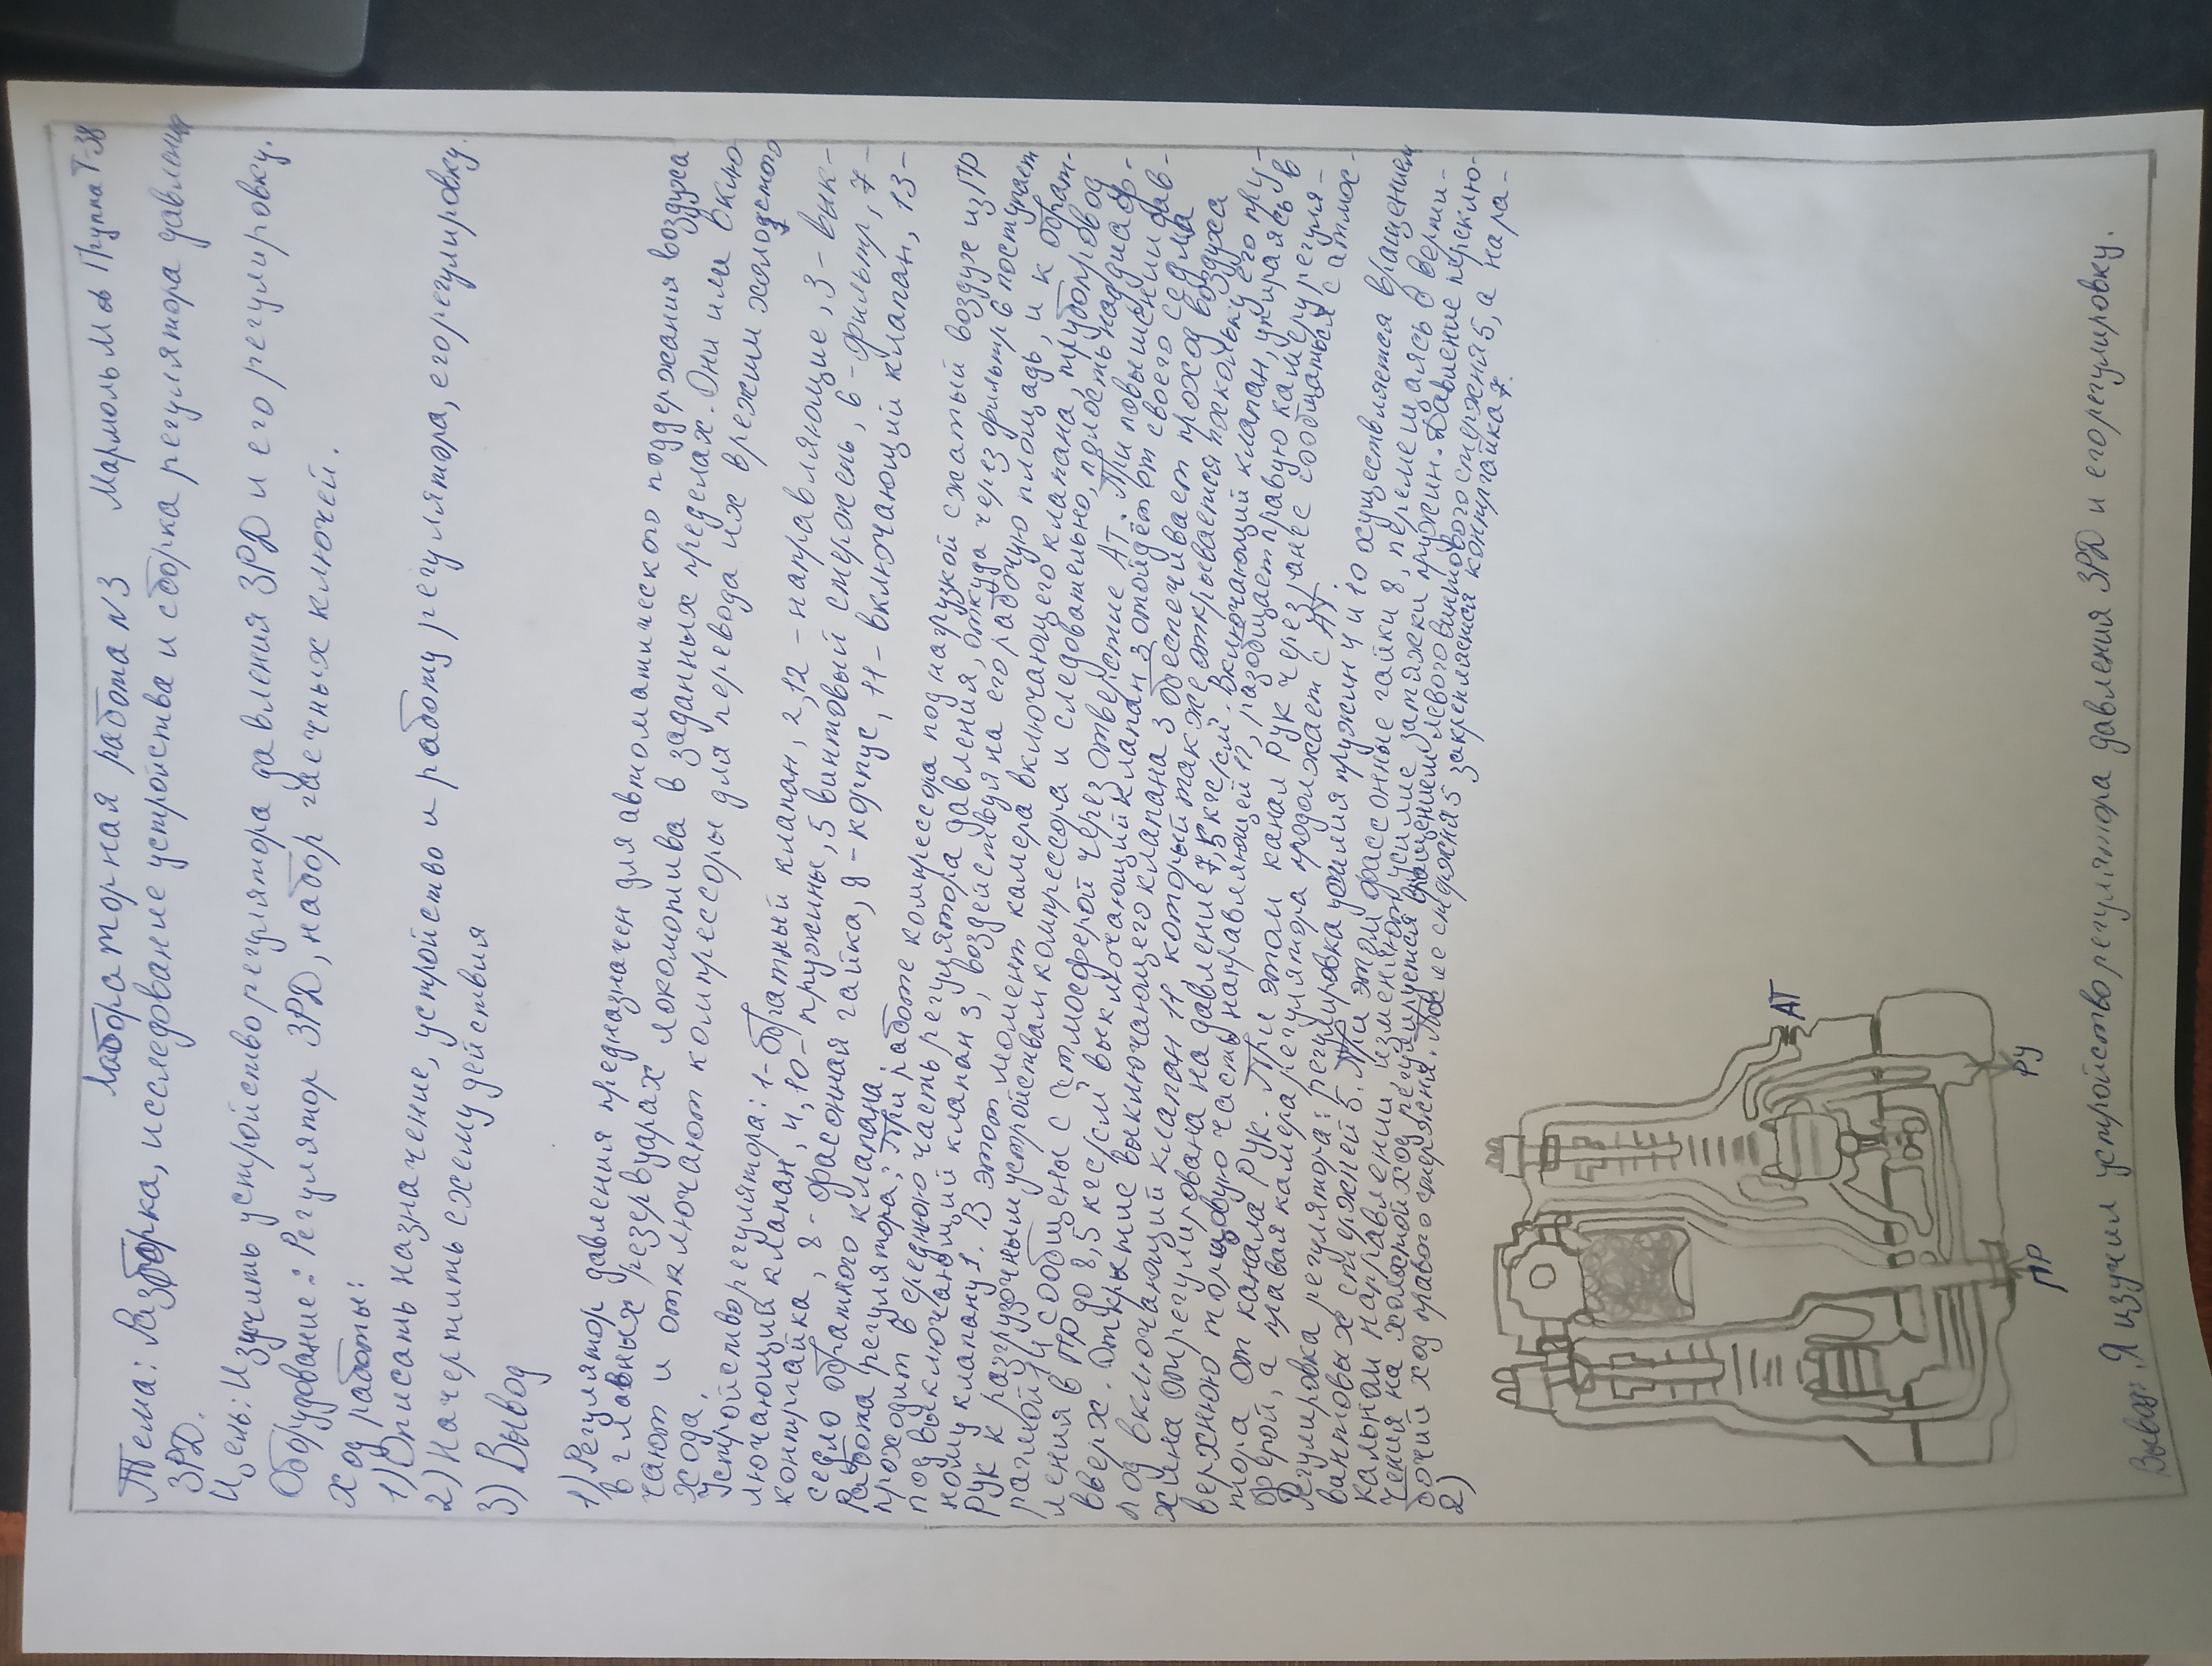 Лабораторная работа №3 Мармоль М.а Группа Т-38
Тема: Разборка, исследование устройства и сборка регулятора давления
ЗРД.
Цель: Изучить устройство регулятора давления ЗРД и его регулировку.
Оборудование: Регулятор ЗРД, набор гаечных ключей.
Ход работы:
1) Описать назначение, устройство и работу регулятора, его регулировку.
2) Начертить схему действия
3) Вывод
1) Регулятор давления предназначен для автоматического поддержания воздуха
в главных резервуарах локомотива в заданных пределах. Они или вклю-
чают и отключают компрессоры для перевода их в режим холодстого
хода.
Устройство регулятора: 1-братный клапан, 2,12 - направляющие, 3 - вык-
лючающий клапан, 4,10 - пружины, 5 винтовый стержень, 6 - фильтр, 7 -
контргайка, 8 - фасонная гайка, 9 - корпус, 11 - включающий клапан, 13 -
седло обратного клапана.
Работа регулятора: При работе компрессора под нагрузкой сжатый воздух из ПР
проходит в среднюю часть регулятора давления, откуда через фильтр 6 поступает
под выключающий клапан 3, воздействуя на его рабочую площадь, и к обрат-
ному клапану 1. В этот момент камера включающего клапана, трубопровод
РУК к разгрузочным устройствам компрессора и следовательно, полость над диаф-
рагмой 14 сообщены с атмосферой через отверстие АТ. При повышении дав-
ления в ПР до 8,5 кгс/см выключающий клапан 3 отойдёт от своего седла
вверх. Открытие выключающего клапана 3 обеспечивает проход воздуха
под включающий клапан 11 который также открывается поскольку его пру-
жина отрегулирована на давление 7,5 кгс/см. Включающий клапан, упираясь в
верхнюю торцовую часть направляющей 12, разобщает правую камеру регуля-
тора от канала РУК. При этом канал РУК через ранее сообщаться с атмос-
ферой, а правая камера регулятора продолжает с АТ.
Регулировка регулятора: регулировка усилия пружин 4 и 10 осуществляется вращением
винтовых стержней 5. При этом фасонные гайки 8, перемещаясь в верти-
кальном направлении изменяют усилие затяжки пружин. Давление переклю-
чения на холостой ход регулируется вращением левого винтового стержня 5, а на ра-
бочий ход правого стержня. После стержня 5 закрепляется контргайка 7.
2)
АТ
ПР
РУ
Вывод: Я изучил устройство регулятора давления ЗРД и его регулировку.